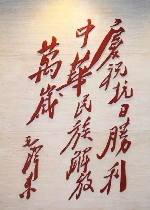 庆祝抗日勝利
中華民族解放
萬歲
毛澤东